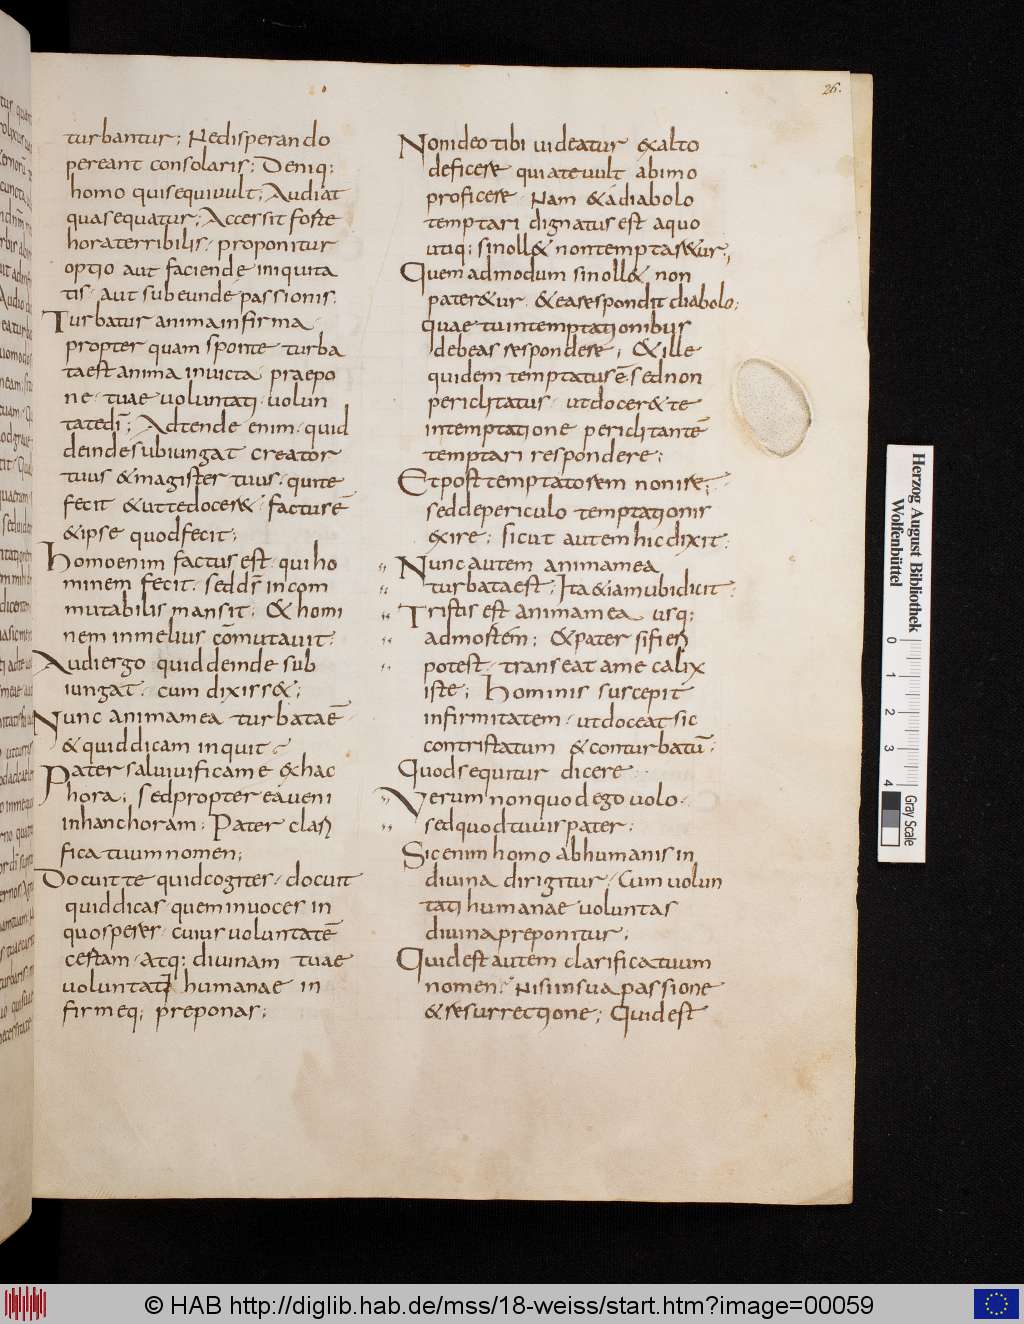 26.
turbantur; Nedisperando
pereant consolaris; Deniq;
homo quisequivult; Audiat
quasequatur; Accessit forte
horaterribilis; proponitur
optio aut faciende iniquita
tis; aut subeunde passionis.
Turbatur animainfirma
propter quam sponte turba
taest anima invicta; praepo
ne tuae voluntati volun
tatedī; Adtende enim quid
deindesubiungat creator
tuus &magister tuus; quite
fecit &uttedocer&; facturē
&ipse quodfecit;
homoenim factus est quiho
minem fecit; seddš incom
mutabilis mansit; & homi
nem inmelius cōmutavit;
Audiergo quiddeinde sub
iungat cum dixiss&;
Nunc animamea turbataē
& quid dicam inquit
Pater salvivificame &hac
hora; sedpropterea veni
inhanchoram; Pater clari
fica tuum nomen;
Docuit te quidcogites; docuit
quiddicas quem invoces in
quosperes cuius voluntatē
certam atq; divinam tuae
voluntati humanae in
firmeq; preponas;
Nonideo tibi videatur &alto
deficere quiatevult abimo
proficere Nam &adiabolo
temptari dignatus est aquo
utiq; sinoll& nontemptaretur;
Quemadmodum sinoll& non
pater&ur &earespondit diabolo;
quae tuintemptationibus
debeas respondere; & ille
quidem temptatus ē sednon
periclitatus utdocer& te
intemptatione periclitantē
temptari respondere;
Etposttemptatorem nonire;
seddepericulo temptationis
exire; sicut autem hicdixit;
Nunc autem animamea
turbataest; Ita&iamubidicit
Tristis est animamea usq;
admortem; &pater sifieri
potest transeat ame calix
iste; hominis suscepit
infirmitatem utdoceat sic
contristatum &conturbatū;
Quodsequitur dicere
Verum nonquodego volo
sedquodtuvis pater;
Sicenim homo abhumanis in
divina dirigitur Cum volun
tati humanae voluntas
divinapreponitur;
Quidest autem clarificatuum
nomen; Nisiinsua passione
&resurrectione; Quidest
Herzog August Bibliothek
Wolfenbüttel
0 1 2 3 4
Gray Scale
© HAB http://diglib.hab.de/mss/18-weiss/start.htm?image=00059